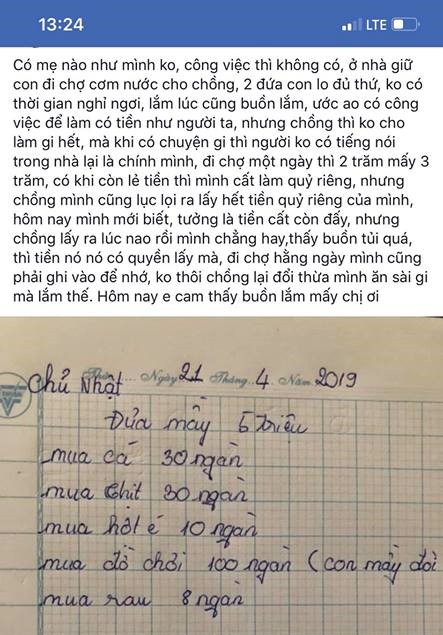 13:24
LTE
Có mẹ nào như mình ko, công việc thì không có, ở nhà giữ
con đi chợ cơm nước cho chồng, 2 đứa con lo đủ thứ, ko có
thời gian nghỉ ngơi, lắm lúc cũng buồn lắm, ước ao có công
việc để làm có tiền như người ta, nhưng chồng thì ko cho
làm gi hết, mà khi có chuyện gi thì người ko có tiếng nói
trong nhà lại là chính mình, đi chợ một ngày thì 2 trăm mấy 3
trăm, có khi còn lẻ tiền thì mình cất làm quỷ riêng, nhưng
chồng mình cũng lục lọi ra lấy hết tiền quỷ riêng của mình,
hôm nay mình mới biết, tưởng là tiền cất còn đấy, nhưng
chồng lấy ra lúc nao rồi mình chẳng hay,thấy buồn tủi quá,
thì tiền nó nó có quyền lấy mà, đi chợ hằng ngày mình cũng
phải ghi vào để nhớ, ko thôi chồng lại đổi thừa mình ăn sài gi
mà lắm thế. Hôm nay e cam thấy buồn lắm mấy chị ơi
Chủ Nhật Ngày 21 Tháng 4 Năm 2019
Đưa mầy 5 triệu
mua cá 30 ngàn
mua thit 30 ngàn
mua hột é 10 ngàn
mua đồ chơi 100 ngàn (con mầy đòi
mua rau 8 ngàn